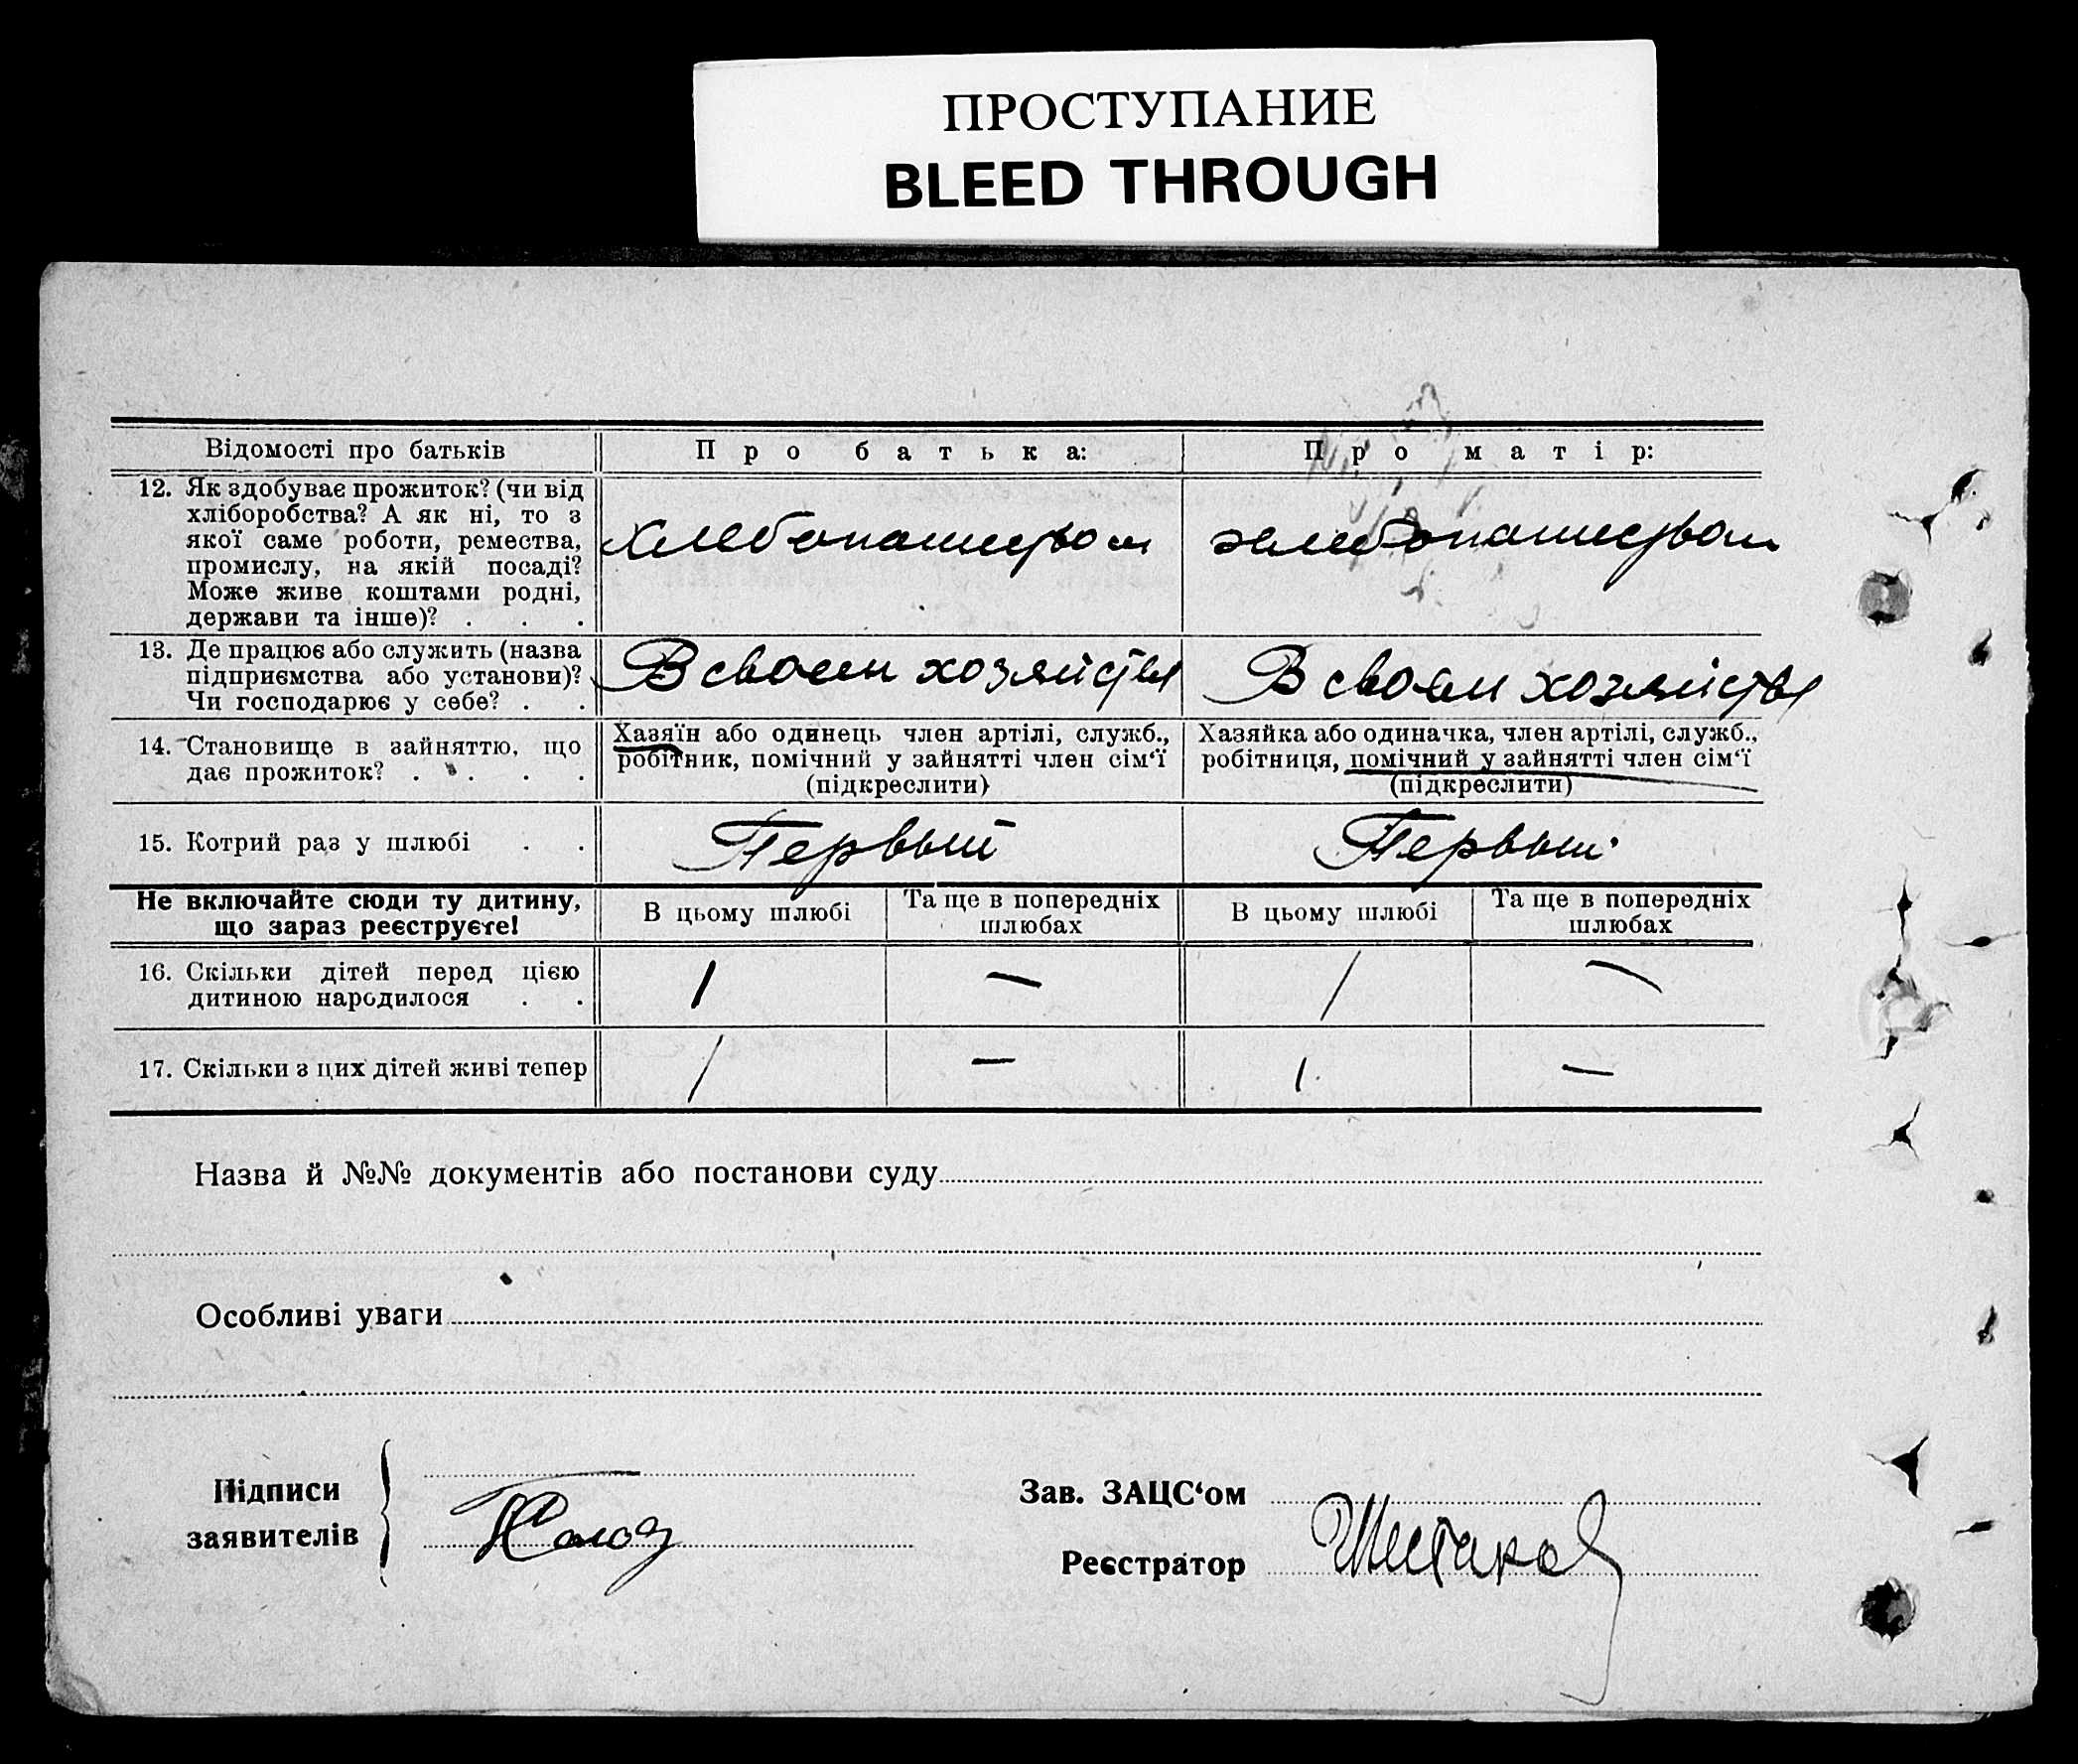 ПРОСТУПАНИЕ
BLEED THROUGH
Відомості про батьків
Про батька:
Про матір:
12. Як здобуває прожиток? (чи від
хліборобства? А як ні, то з
якої саме роботи, ремества,
промислу, на якій посаді?
Може живе коштами родні,
держави та інше)? . . .
хлебопашеством
хлебопашеством
13. Де працює або служить (назва
підприємства або установи)?
Чи господарює у себе? . .
В своем хозяйстве
В своем хозяйстве
14. Становище в зайняттю, що
дає прожиток? . . . .
Хазяїн або одинець член артілі, служб.,
робітник, помічний у зайнятті член сім‘ї
(підкреслити)
Хазяйка або одиначка, член артілі, служб.,
робітниця, помічний у зайнятті член сім‘ї
(підкреслити)
15. Котрий раз у шлюбі . .
Первый
Первый
Не включайте сюди ту дитину,
що зараз реєструєте!
В цьому шлюбі
Та ще в попередніх
шлюбах
В цьому шлюбі
Та ще в попередніх
шлюбах
16. Скільки дітей перед цією
дитиною народилося . .
1 — 1 —
17. Скільки з цих дітей живі тепер
1 — 1 —
Назва й №№ документів або постанови суду
Особливі уваги
Підписи
заявителів
Зав. ЗАЦС‘ом
Реєстратор